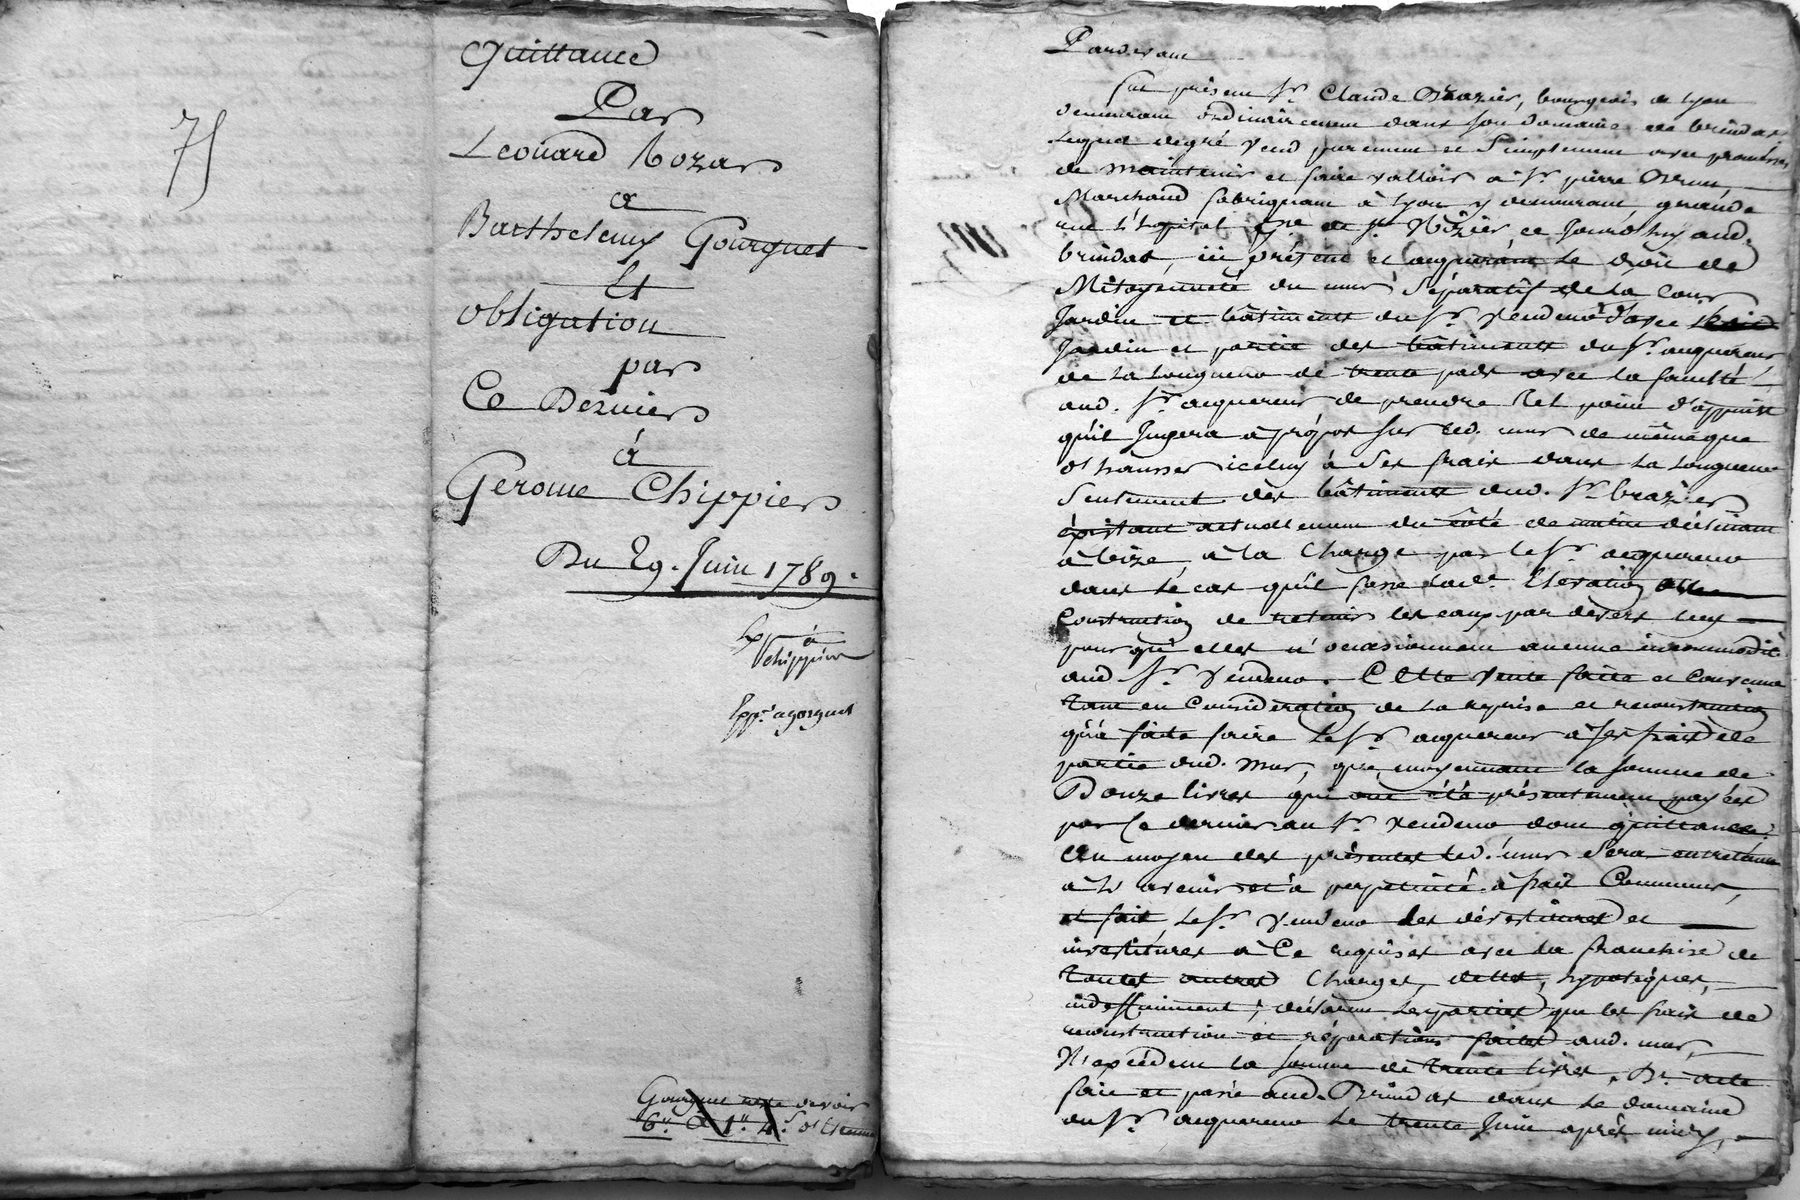 75
Quittance
Par
Leonard Rozar
a
Barthelemy Gourguet
Et
obligation
par
Ce Dernier
á
Gerome Chippier
Du 29. Juin 1789.
Exp. à
chippier
Exp. a gorguet
Gourguet reste devoir
Pardevant
fut présent Sr. Claude Brazier, bourgeois de Lyon
demeurant ordinairement dans son domaine de brindas
Lequel de gré vend purement et simplement avec promesse
de maintenir et faire valloir à Sr. pierre Brun,
Marchand fabriquant à Lyon y demeurant grande
rue L'hopital psse. de St. Nizier ce Jourd'huy aud.
brindas, ici présent et acquérant Le droit de
Mitoyenneté du mur Séparatif de la Cour
Jardin et bâtiments du Sr. Vendeur d'avec
Jardin et partie des bâtiments du Sr. acquéreur
de La Longueur de trente pieds avec la faculté
aud. Sr. acquereur de prendre tel point d'appuit
qu'il Jugera à propos sur led. mur de même que
d'hausser iceluy à ses frais dans La Longueur
Seulement des bâtiments dud. Sr. brazier
éxistant actuellement du côté de matin déclinant
à bize, à la Charge par le Sr. acquereur
dans Le cas qu'il fasse lade. Elevation
Construction de retenir les eaux par devers luy
pour qu'elles n'occasionnent aucune incommodité
aud. Sr. Vendeur. Cette vente faite et convenue
tant en Considération de La reprise et reconstruction
qu'a faite faire Le Sr. acquereur à ses frais de
partie dud. mur, que moyennant la somme de
Douze livres qui ont été présentement payées
par Ce dernier au Sr. vendeur dont quittance.
Au moyen des présentes led. mur Sera entretenu
à L'avenir et à perpétuité à frais Communs,
et fait Le Sr. Vendeur les dévestitures et
investitures à Ce requises avec La franchise de
toutes autres Charges, dettes, hypotéques,
indéffiniment; déclarent Les parties que les frais de
reconstruction et réparations faites aud. mur,
N'excédent la somme de trente livres. Dt. acte
fait et passé aud. Brindas dans Le domaine
du Sr. acquereur Le trente Juin après midy,